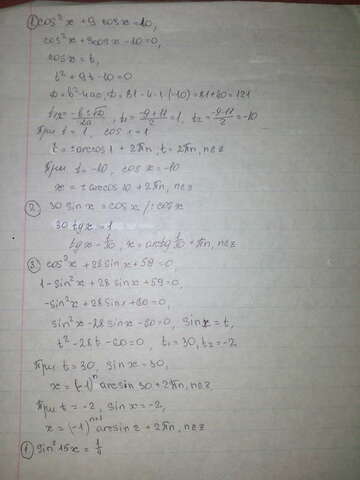 ① cos²x + 9 cosx = 10,
cos²x + 9cosx - 10 = 0,
cosx = t,
t² + 9t - 10 = 0
D = b² - 4ac, D = 81 - 4·1·(-10) = 81 + 40 = 121
t₁,₂ = (-b ± √D)/2a, t₁ = (-9+11)/2 = 1, t₂ = (-9-11)/2 = -10
При t = 1, cosx = 1
t = ± arccos1 + 2πn, t = 2πn, n∈z
При t = -10, cosx = -10
x = ± arccos10 + 2πn, n∈z
② 30 sinx = cosx /: cosx
30 tgx = 1
tgx = 1/30, x = arctg 1/30 + πn, n∈z
③ cos²x + 28 sinx + 59 = 0,
1 - sin²x + 28 sinx + 59 = 0,
-sin²x + 28 sinx + 60 = 0,
sin²x - 28 sinx - 60 = 0, sinx = t,
t² - 28t - 60 = 0, t₁ = 30, t₂ = -2
При t = 30, sinx = 30,
x = (-1)ⁿ arcsin 30 + 2πn, n∈z
При t = -2, sinx = -2,
x = (-1)ⁿ⁺¹ arcsin 2 + 2πn, n∈z
sin²15x = 1/4